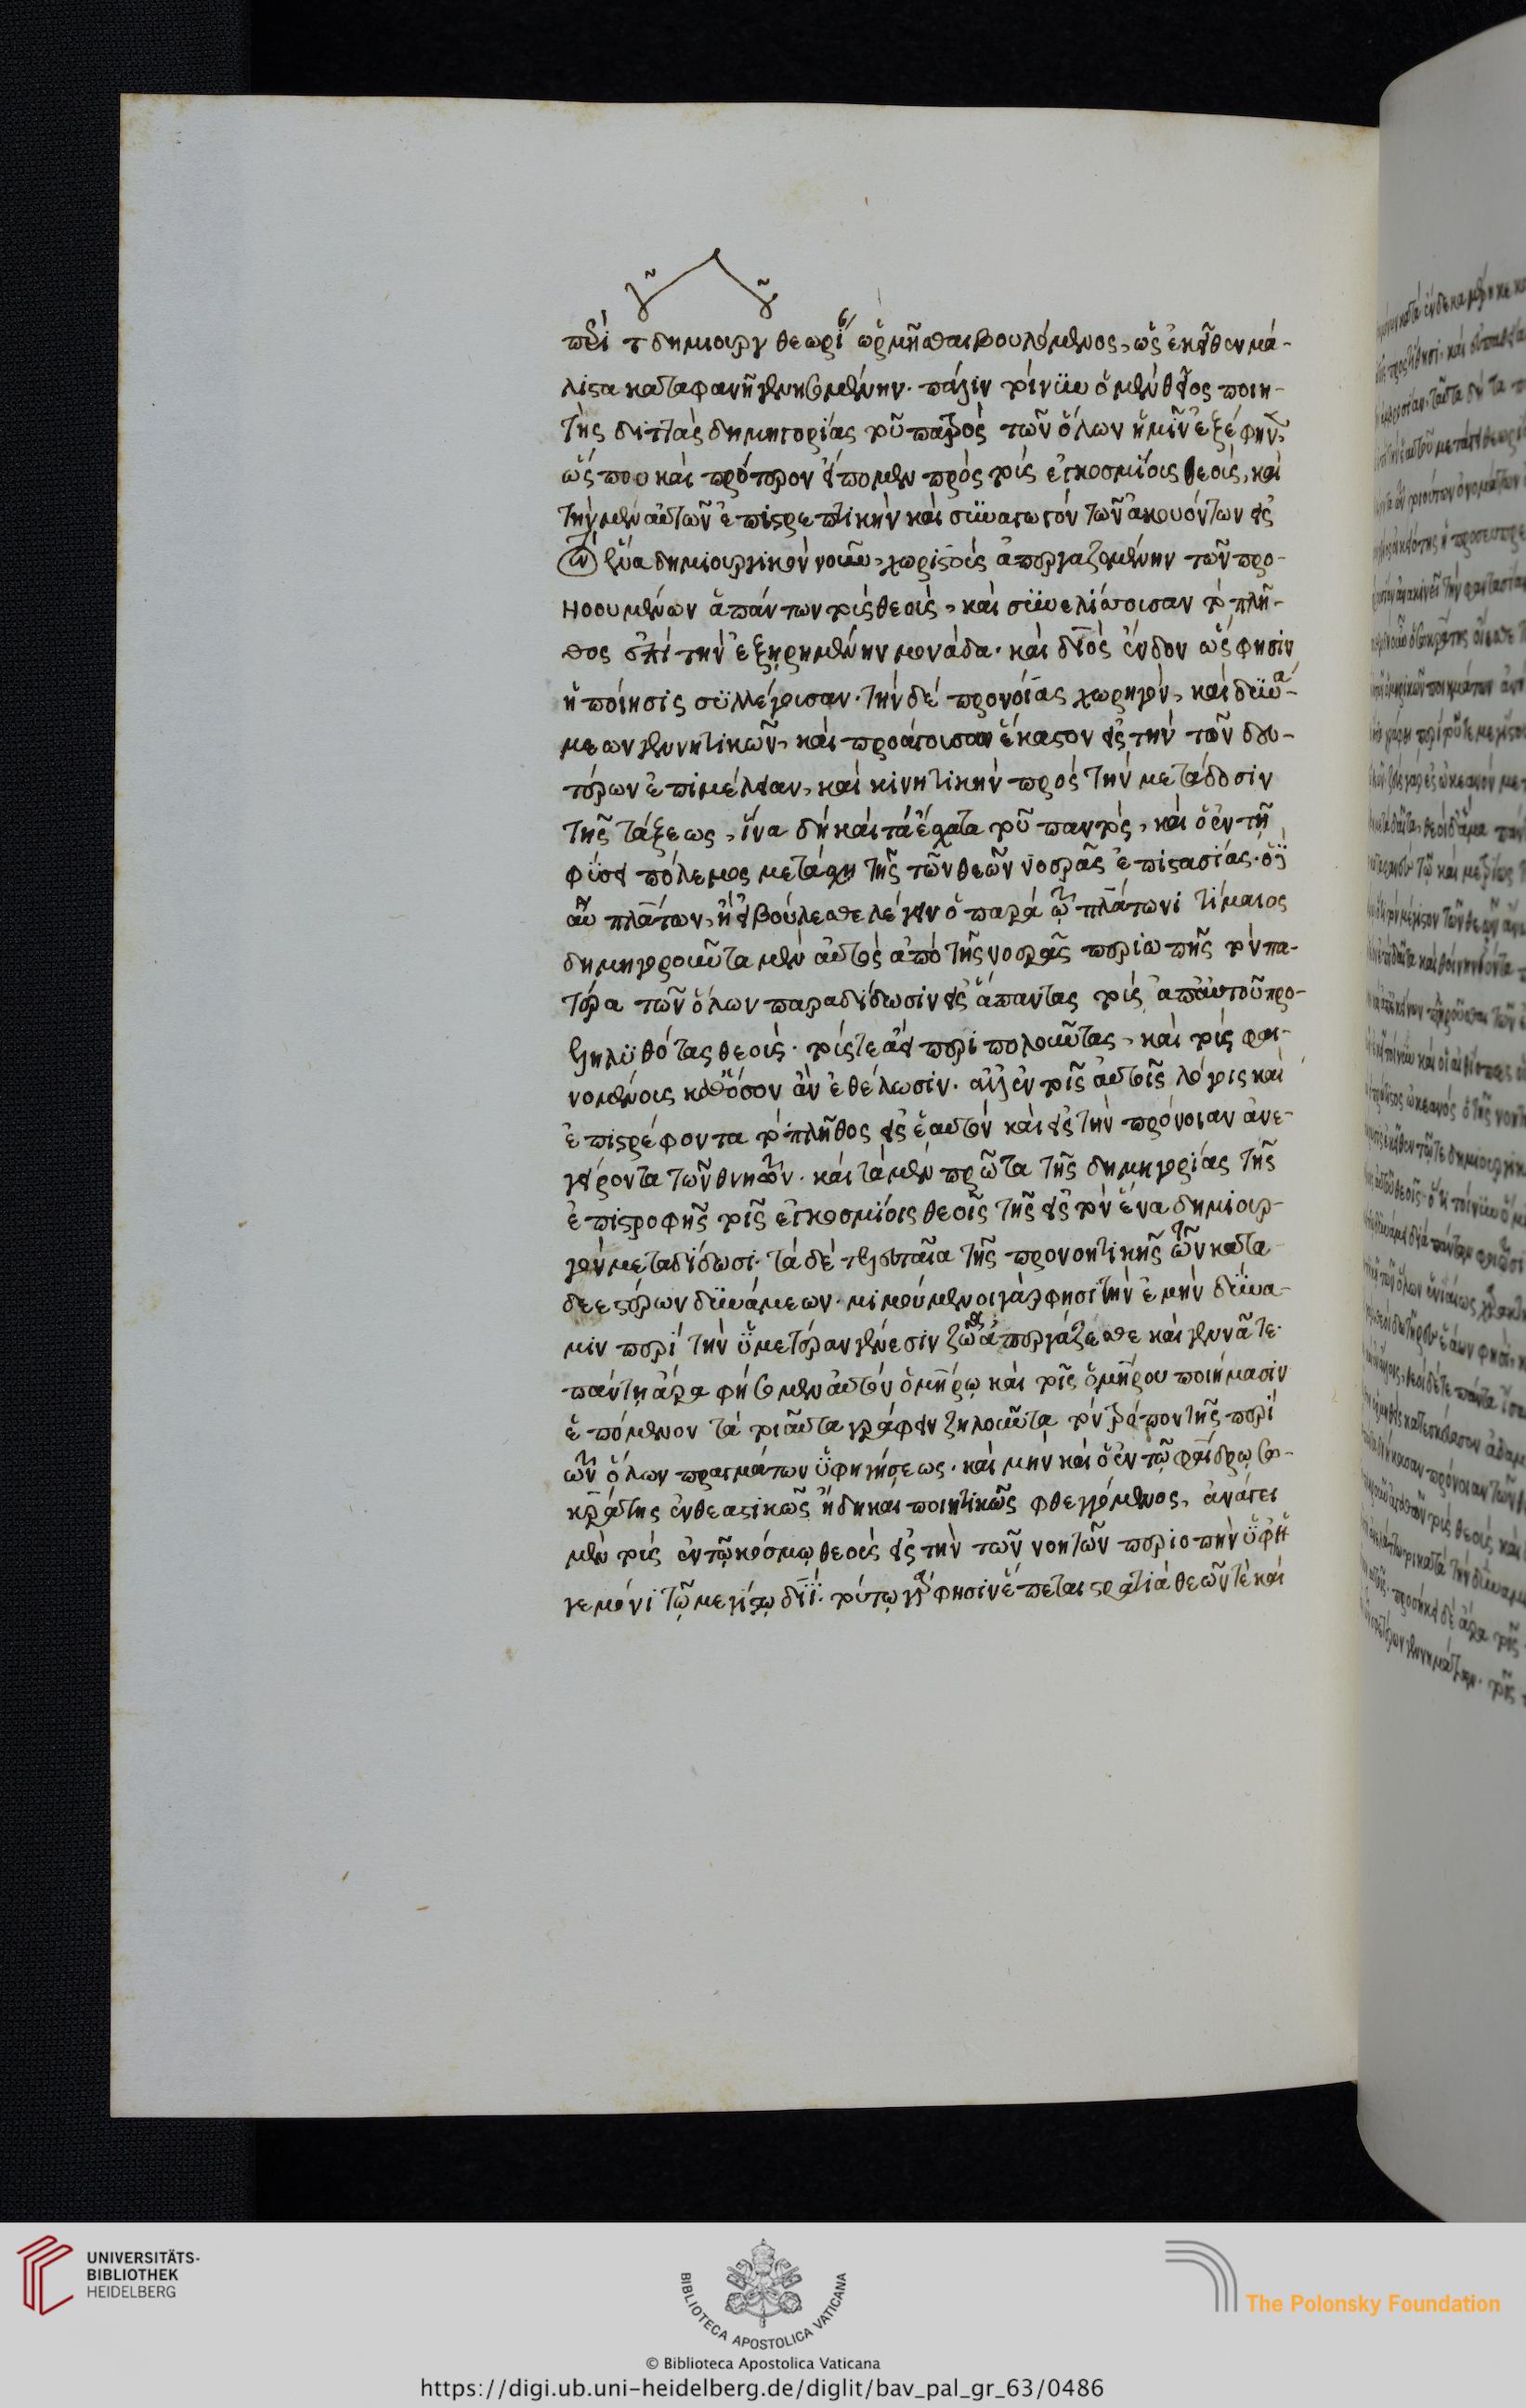 περὶ τ δημιουργ θεωρί ὡρμῆσθαι βουλόμενος, ὡς ἐκεῖθεν μά-
λιστα καταφανῆ γενησομένην. πάλιν τοίνυν ὁ μὲν θεῖος ποιη-
τὴς διττὰς δημηγορίας τοῦ πατρὸς τῶν ὅλων ἡμῖν ἐξέφηνε,
ὥς που καὶ πρότερον εἴπομεν πρὸς τοὺς ἐγκοσμίους θεούς, καὶ
τὴν μὲν αὐτῶν ἐπιστρεπτικὴν καὶ συναγωγὸν τῶν ἀκουόντων εἰς
τὸν ἕνα δημιουργικὸν νοῦν, χωριστοὺς ἀπεργαζομένην τῶν προ-
νοουμένων ἁπάντων τοὺς θεούς, καὶ συνελίττουσαν τὸ πλῆ-
θος ἐπὶ τὴν ἐξῃρημένην μονάδα. καὶ διὸς ἔνδον ὥς φησιν
ἡ ποίησις συλλέγουσαν. τὴν δὲ προνοίας χορηγόν, καὶ δυνά-
μεων γεννητικῶν, καὶ προάγουσαν ἕκαστον εἰς τὴν τῶν δευ-
τέρων ἐπιμέλειαν, καὶ κινητικὴν πρὸς τὴν μετάδοσιν
τῆς τάξεως, ἵνα δὴ καὶ τὰ ἔσχατα τοῦ παντός, καὶ ὁ ἐν τῇ
φύσει πόλεμος μετάσχῃ τῆς τῶν θεῶν νοερᾶς ἐπιστασίας. ὅ
αὖ πλάτων, ἢ εἰ βούλεσθε λέγειν ὁ παρὰ τῷ πλάτωνι τίμαιος
δημηγοροῦντα μὲν αὐτὸς ἀπὸ τῆς νοερᾶς περιωπῆς τὸν πα-
τέρα τῶν ὅλων παραδίδωσιν εἰς ἅπαντας τοὺς ἀπ αὐτοῦ προ-
εληλυθότας θεούς. τούς τε ἀεὶ περιπολοῦντας, καὶ τοὺς φαι-
νομένους καθόσον ἂν ἐθέλωσιν. ἀλλ ἐν τοῖς αὐτοῖς λόγοις καὶ
ἐπιστρέφοντα τὸ πλῆθος εἰς ἑαυτὸν καὶ εἰς τὴν πρόνοιαν ἀνε-
γείροντα τῶν θνητῶν. καὶ τὰ μὲν πρῶτα τῆς δημηγορίας τῆς
ἐπιστροφῆς τοῖς ἐγκοσμίοις θεοῖς τῆς εἰς τὸν ἕνα δημιουρ-
γὸν μεταδίδωσι. τὰ δὲ τελευταῖα τῆς προνοητικῆς τῶν κατα-
δεεστέρων δυνάμεων. μιμούμενοι γάρ φησι τὴν ἐμὴν δύνα-
μιν περὶ τὴν ὑμετέραν γένεσιν ζῶα ἀπεργάζεσθε καὶ γεννᾶτε.
πάντῃ ἄρα φήσομεν αὐτὸν ὁμήρῳ καὶ τοῖς ὁμήρου ποιήμασιν
ἑπόμενον τὰ τοιαῦτα γράφειν ζηλοῦντα τὸν τρόπον τῆς περὶ
τῶν ὅλων πραγμάτων ὑφηγήσεως. καὶ μὴν καὶ ὁ ἐν τῷ φαίδρῳ σω-
κράτης ἐνθεαστικῶς ἤδη καὶ ποιητικῶς φθεγγόμενος, ἀνάγει
μὲν τοὺς ἐν τῷ κόσμῳ θεοὺς εἰς τὴν τῶν νοητῶν περιοπὴν ὑφ ἡ-
γεμόνι τῷ μεγίστῳ διΐ. τούτῳ γάρ φησιν ἕπεται στρατιὰ θεῶν τὲ καὶ
UNIVERSITÄTS-
BIBLIOTHEK
HEIDELBERG
BIBLIOTECA APOSTOLICA VATICANA
The Polonsky Foundation
© Biblioteca Apostolica Vaticana
https://digi.ub.uni-heidelberg.de/diglit/bav_pal_gr_63/0486